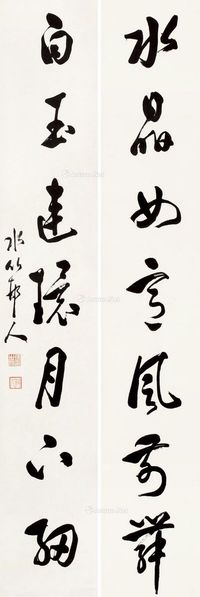 水晶如意風前舞
白玉連環月下細
水竹邨人